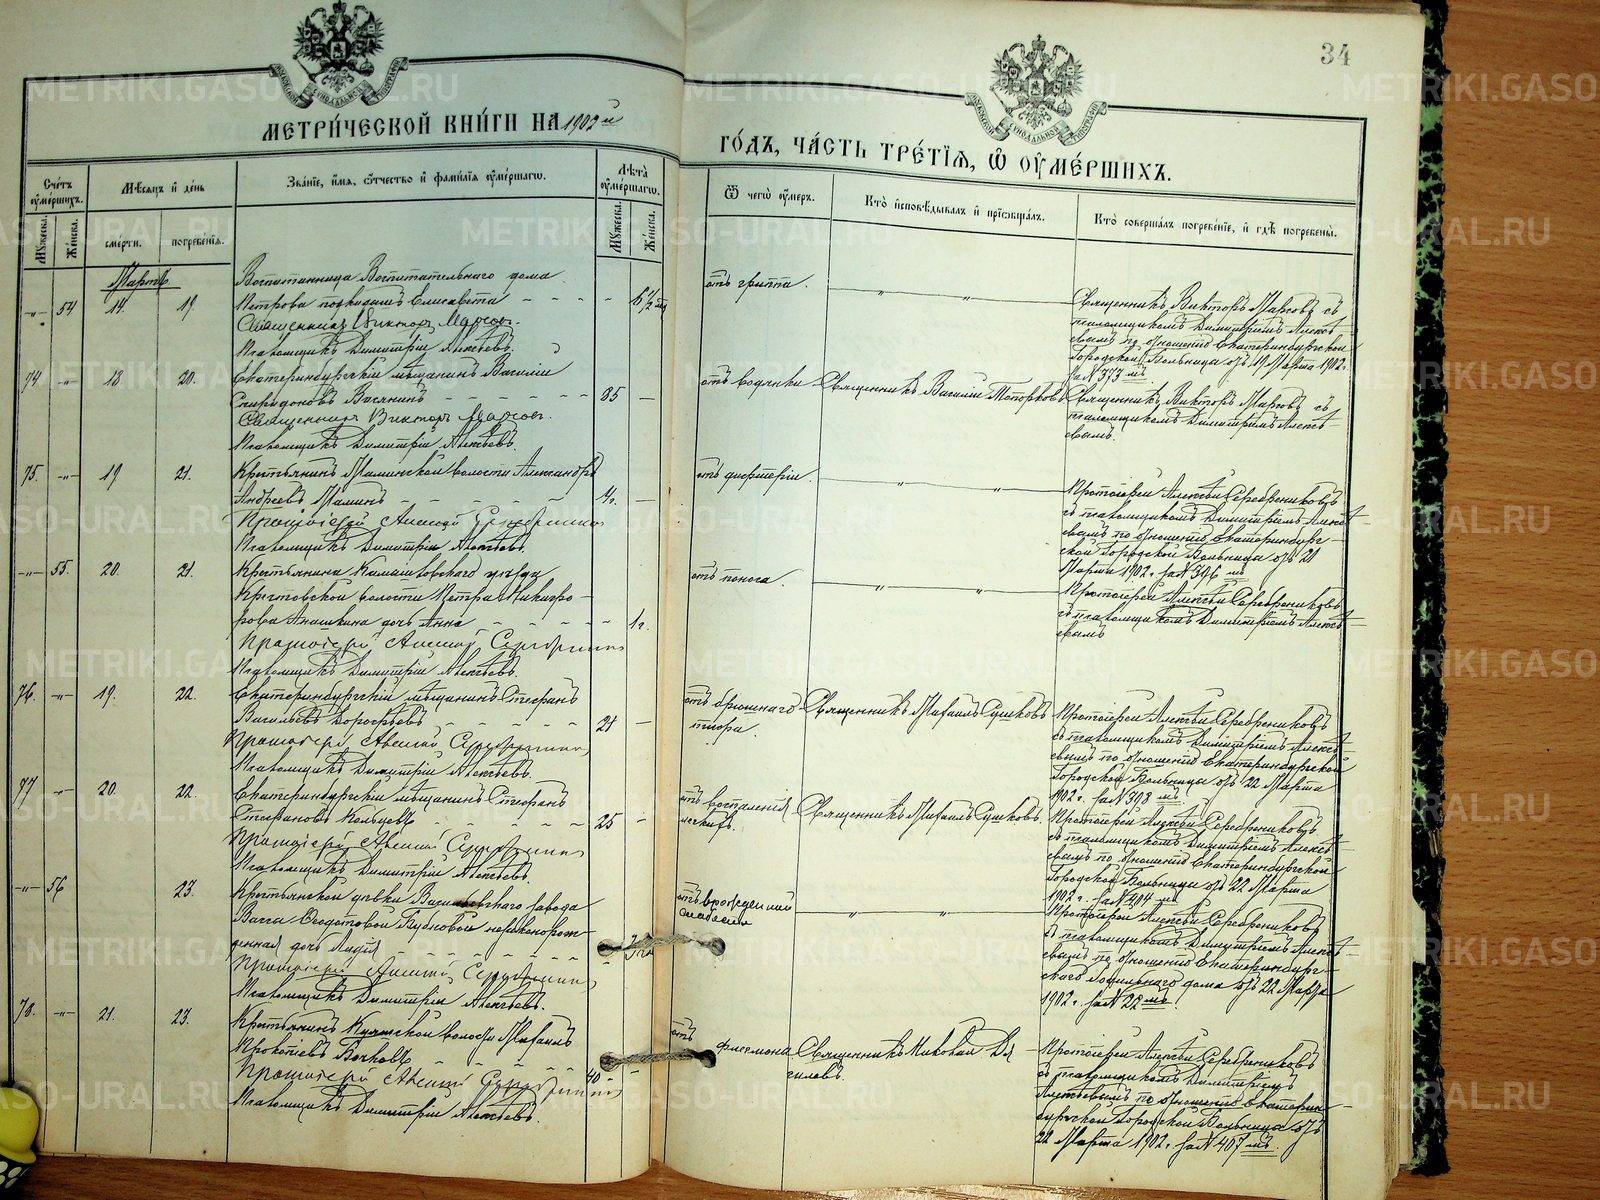 34
МЕТРИ́ЧЕСКОЙ КНИ́ГИ НА 1902 й
ГО́ДЪ, ЧА́СТЬ ТРЕ́ТІѦ, Ѿ ОУМЕ́РШИХЪ.
Сче́тъ оумершихъ.
Мꙋжеска.
Же́нска.
Мѣсѧцъ и де́нь
сме́рти.
погребе́нїѧ.
Зва́нїе, и́мѧ, о́тчество и фами́лїѧ оуме́ршагѡ.
Лѣ́та оуме́ршагѡ.
Мꙋжеска.
Же́нска.
Ѿ чегѡ̀ оу́меръ.
Кто̀ и́сповѣ́дывалъ и прїѡбща́лъ.
Кто̀ соверша́лъ погребе́нїе, и гдѣ̀ погребены̀.
Мартъ.
-„- 54 14. 19.
Воспитанница Воспитательнаго дома
Петрова подкидышъ Елисавета
Священникъ Викторъ Марсовъ.
Псаломщикъ Димитрій Алексѣевъ.
отъ гриппа.
Священникъ Викторъ Марсовъ съ
псаломщикомъ Димитріемъ Алексѣ-
евымъ по отношенію Екатеринбургской
Городской Больницы отъ 19 Марта 1902 г.
за № 373 мъ
74. -„- 18 20.
Екатеринбургскій мѣщанинъ Василій
Спиридоновъ 85 —
Священникъ Викторъ Марсовъ.
Псаломщикъ Димитрій Алексѣевъ.
отъ водянки
Священникъ Василій Топорковъ
Священникъ Викторъ Марсовъ съ
псаломщикомъ Димитріемъ Алексѣ-
евымъ.
75. -„- 19 21.
Крестьянинъ Маминской волости Александръ
Андреевъ Маминъ 4 г. —
Протоіерей Алексій Серебрениковъ
Псаломщикъ Димитрій Алексѣевъ.
отъ дифтеріи.
Протоіерей Алексій Серебрениковъ
съ псаломщикомъ Димитріемъ Алексѣ-
евымъ по отношенію Екатеринбург-
ской Городской Больницы отъ 21
Марта 1902 г. за № 396 мъ
-„- 55. 20. 21.
Крестьянина Камышловскаго уѣзда
волости Петра Никифо-
рова дочь Анна 1 г.
Протоіерей Алексій Серебрениковъ
Псаломщикъ Димитрій Алексѣевъ.
отъ поноса.
Протоіерей Алексій Серебрениковъ
съ псаломщикомъ Димитріемъ Алексѣ-
евымъ
76. -„- 19. 22.
Екатеринбургскій мѣщанинъ Стефанъ
Васильевъ Дорофѣевъ 24 —
Протоіерей Алексій Серебрениковъ
Псаломщикъ Димитрій Алексѣевъ.
отъ брюшнаго
тифа.
Священникъ Михаилъ Сушковъ
Протоіерей Алексій Серебрениковъ
съ псаломщикомъ Димитріемъ Алексѣ-
евымъ по отношенію Екатеринбургской
Городской Больницы отъ 22 Марта
1902 г. за № 398 мъ
77 -„- 20. 22.
Екатеринбургскій мѣщанинъ Стефанъ
Стефановъ 25 -
Протоіерей Алексій Серебрениковъ
Псаломщикъ Димитрій Алексѣевъ.
отъ воспаленія
легкихъ.
Священникъ Михаилъ Сушковъ.
Протоіерей Алексій Серебрениковъ
съ псаломщикомъ Димитріемъ Алексѣ-
евымъ по отношенію Екатеринбургской
Городской Больницы отъ 22 Марта
1902 г. за № 404 мъ
-„- 56 23.
Крестьянской дѣвки завода
Вассы Ѳедотовой незаконорож-
денная дочь Лидія
Протоіерей Алексій Серебрениковъ
Псаломщикъ Димитрій Алексѣевъ.
отъ врожденной
слабости
Протоіерей Алексій Серебрениковъ
съ псаломщикомъ Димитріемъ Алексѣ-
евымъ по отношенію Екатеринбург-
скаго Родильнаго дома отъ 22 Марта
1902 г. за № 22 мъ
78. -„- 21. 23.
Крестьянинъ волости Михаилъ
Прокопіевъ 40 -
Протоіерей Алексій Серебрениковъ
Псаломщикъ Димитрій Алексѣевъ.
отъ флегмоны
Священникъ Николай
Протоіерей Алексій Серебрениковъ
съ псаломщикомъ Димитріемъ
Алексѣевымъ по отношенію Екатерин-
бургской Городской Больницы отъ
22 Марта 1902 г. за № 407 мъ
METRIKI.GASO-URAL.RU